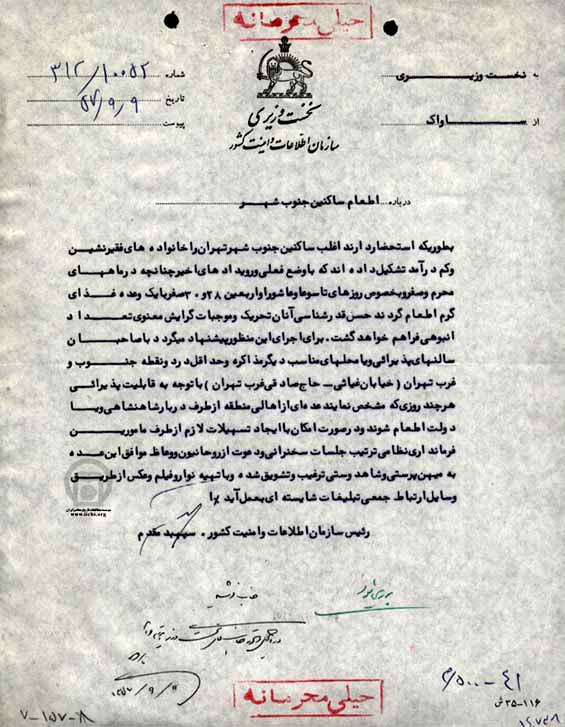 خیلی محرمانه
به نخست وزیری
شماره ۳۱۲/۱۰۰۵۲
تاریخ ۵۷/۹/۹
از ساواک
پیوست
نخست وزیری
سازمان اطلاعات و امنیت کشور
درباره اطعام ساکنین جنوب شهر
بطوریکه استحضار دارند اغلب ساکنین جنوب شهر تهران را خانواده های فقیرنشین
وکم درآمد تشکیل داده اند که باوضع فعلی ورویدادهای اخیر چنانچه درماههای
محرم وصفر وبخصوص روزهای تاسوعا وعاشورا واربعین ۲۸ و ۳۰ صفر بایک وعده غذای
گرم اطعام گردند حس قدرشناسی آنان تحریک وموجبات گرایش معنوی تعداد
انبوهی فراهم خواهد گشت. برای اجرای این منظور پیشنهاد میگردد باصاحبان
سالنهای پذیرائی ویا محلهای مناسب دیگر مذاکره وحداقل در دو نقطه جنوب و
غرب تهران (خیابان غیاثی - حاج صادقی غرب تهران) باتوجه به قابلیت پذیرائی
هرچند روزی که مشخص نمایند عده ای از اهالی منطقه از طرف دربار شاهنشاهی ویا
دولت اطعام شوند ودرصورت امکان باایجاد تسهیلات لازم از طرف مامورین
فرمانداری نظامی ترتیب جلسات سخنرانی ودعوت از روحانیون ووعاظ موافق این عده
به میهن پرستی وشاهدوستی ترغیب وتشویق شده وباتهیه نوار وفیلم وعکس از طریق
وسایل ارتباط جمعی تبلیغات شایسته ای بعمل آید
رئیس سازمان اطلاعات وامنیت کشور. سپهبد مقدم
www.iichs.org
خیلی محرمانه
۳۵-۱۱۶ ش
۷-۱۵۷-۸